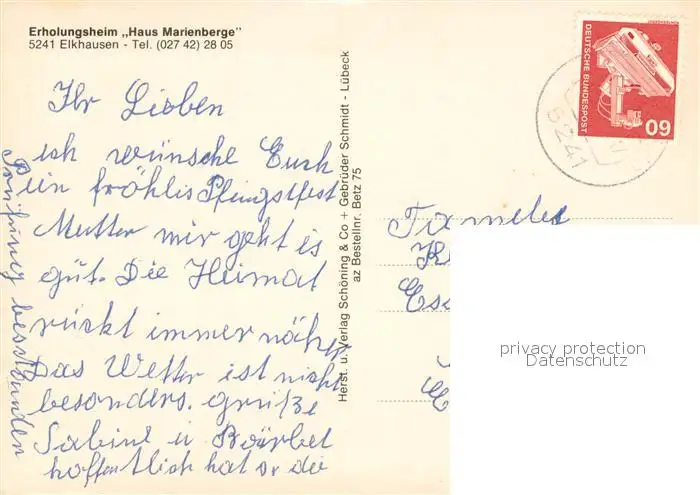 Erholungsheim „Haus Marienberge"
5241 Elkhausen - Tel. (027 42) 28 05
Ihr Lieben
ich wünsche Euch
ein fröhlis Pfingstfest
Mutter mir geht is
gut. Die Heimat
rückt immer näher
Das Wetter ist nicht
besonders. grüße
Sabine u Bärbel
hoffentlich hat er die
Prüfung bestanden
Herst. u. Verlag Schöning & Co + Gebrüder Schmidt - Lübeck
az Bestellnr. Betz 75
DEUTSCHE BUNDESPOST
60
Ess
privacy protection
Datenschutz